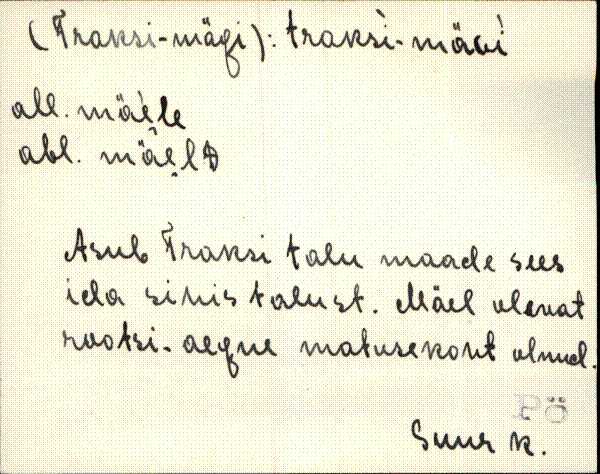 (Traksi-mägi): traksi-mäɢi
all. mäele
abl. mäelD
Asub Traksi talu maade sees
ida sihis talust. Mäel olevat
rootsi-aegne matusekoht olnud.
Pö
Suur k.